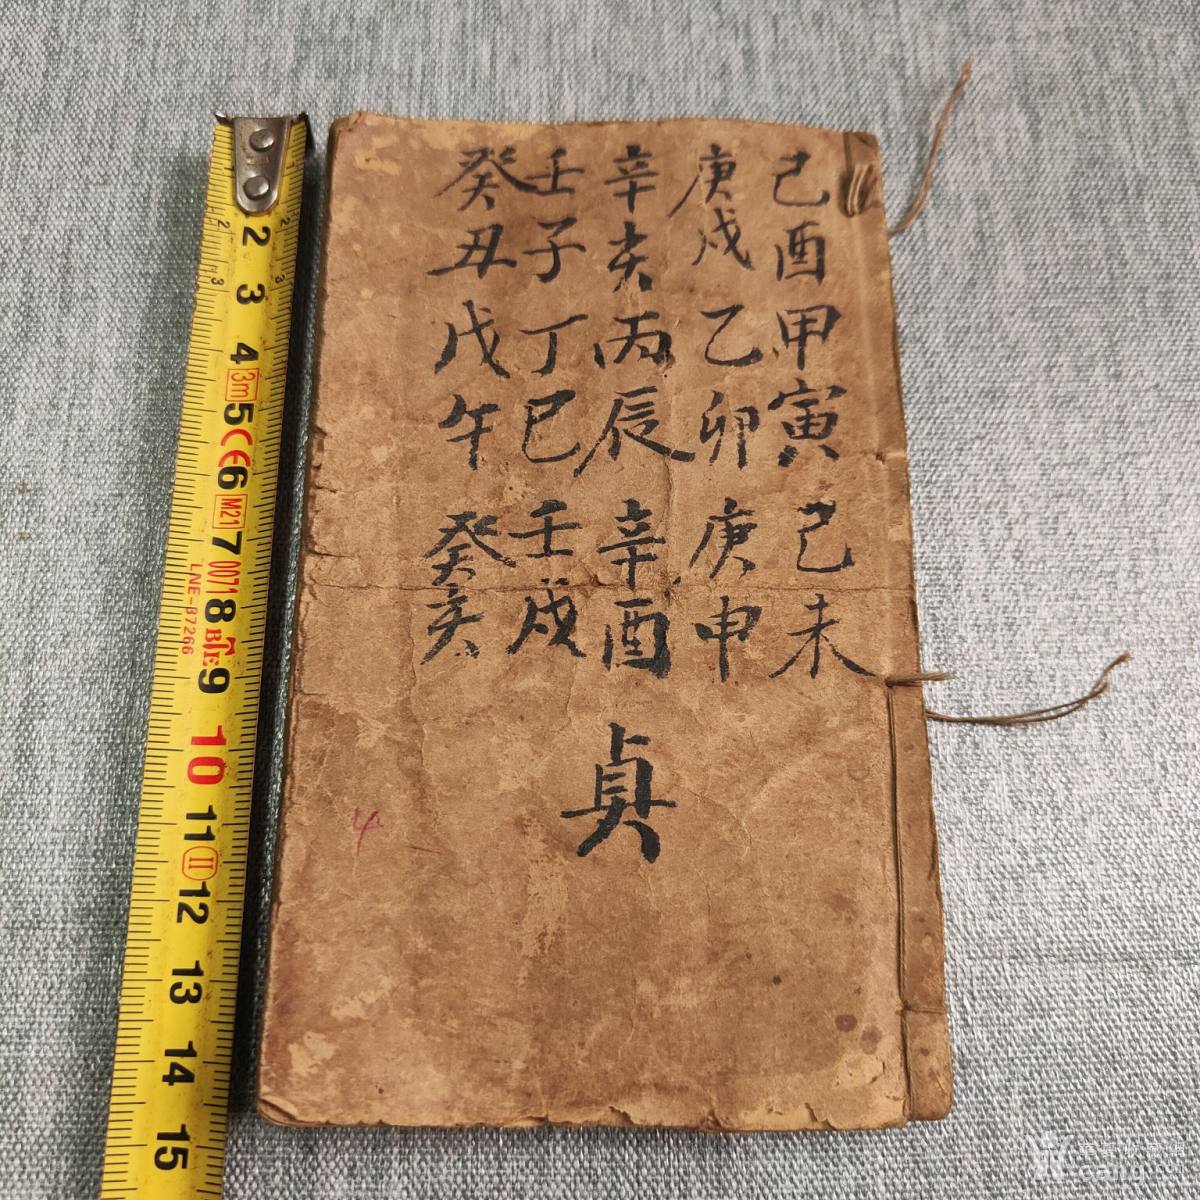 己酉甲寅己未
庚戌乙卯庚申
辛亥丙辰辛酉
壬子丁巳壬戌
癸丑戊午癸亥
貞
4
2
3
4
3m
5
CE
6
M21
7
0071
8
LNE-87266
9
10
11
II
12
13
14
15